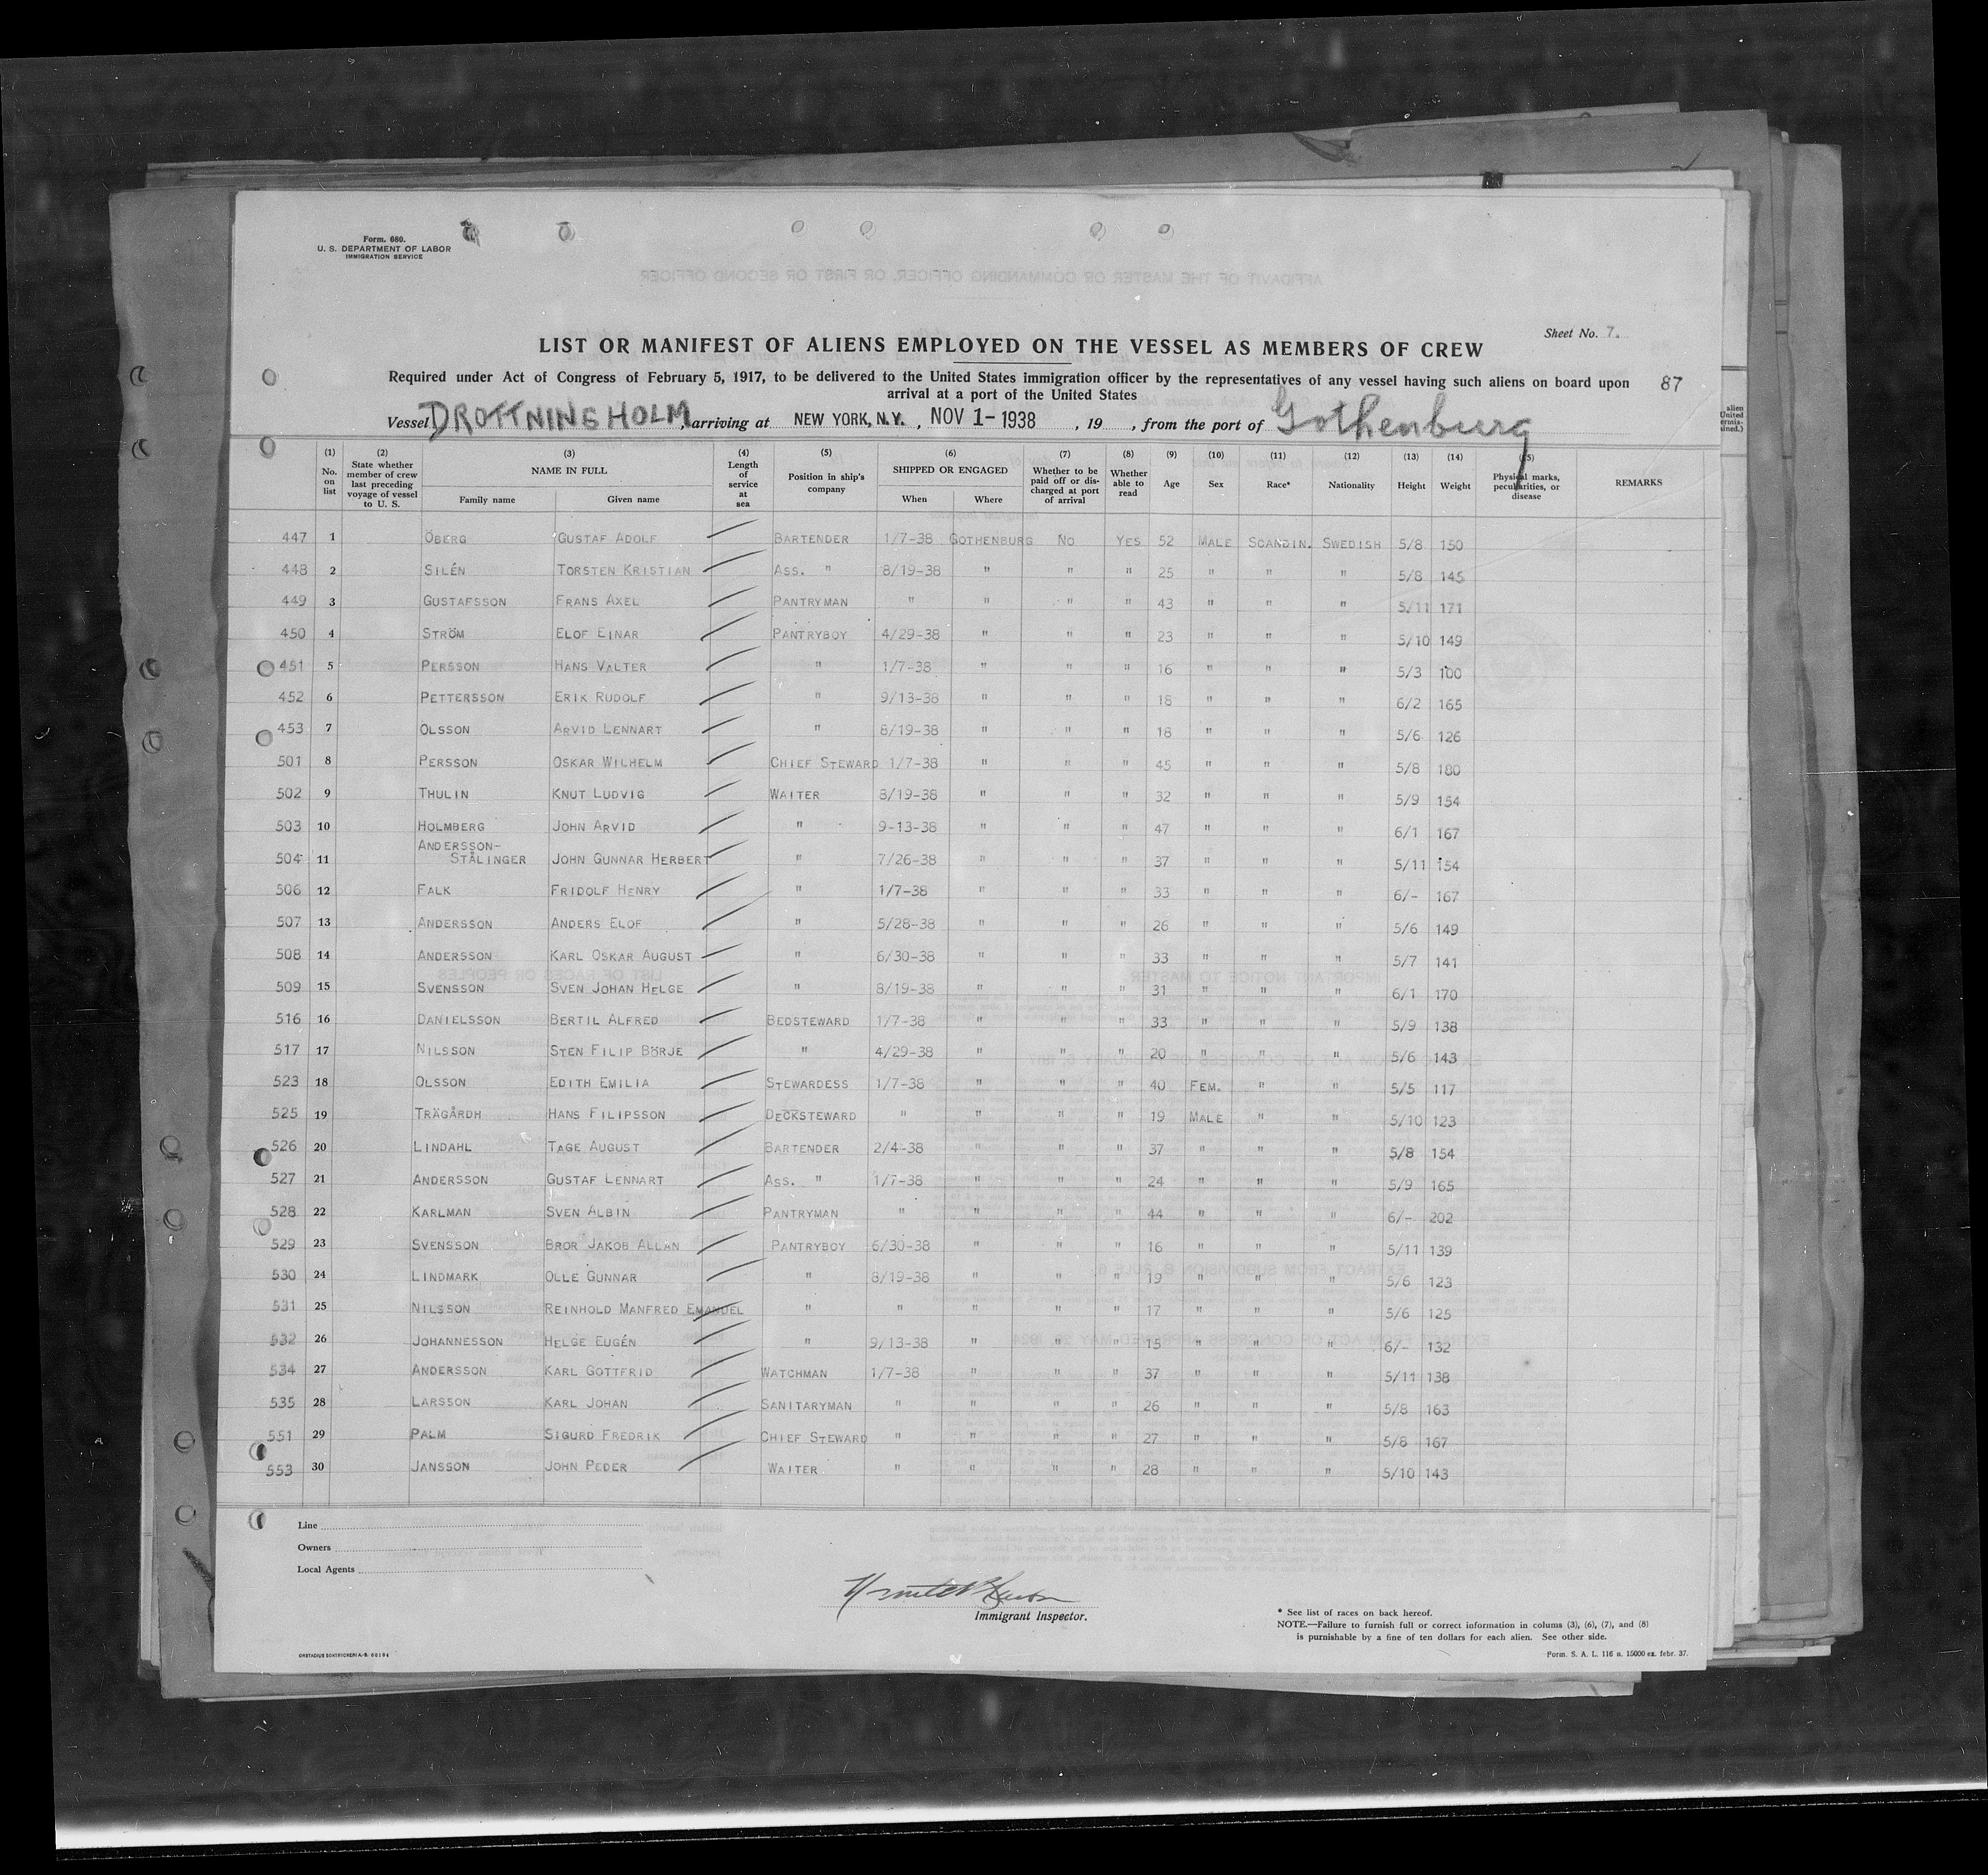 Form. 680.
U. S. DEPARTMENT OF LABOR
IMMIGRATION SERVICE
Sheet No. 7.
LIST OR MANIFEST OF ALIENS EMPLOYED ON THE VESSEL AS MEMBERS OF CREW
Required under Act of Congress of February 5, 1917, to be delivered to the United States immigration officer by the representatives of any vessel having such aliens on board upon
87
arrival at a port of the United States
Vessel DROTTNINGHOLM, arriving at NEW YORK, N.Y., NOV 1-1938, 19, from the port of Gothenburg
(1) No. on list (2) State whether member of crew last preceding voyage of vessel to U. S. (3) NAME IN FULL Family name Given name (4) Length of service at sea (5) Position in ship's company (6) SHIPPED OR ENGAGED When Where (7) Whether to be paid off or discharged at port of arrival (8) Whether able to read (9) Age (10) Sex (11) Race* (12) Nationality (13) Height (14) Weight (15) Physical marks, peculiarities, or disease REMARKS
447 1 ÖBERG GUSTAF ADOLF BARTENDER 1/7-38 GOTHENBURG NO YES 52 MALE SCANDIN. SWEDISH 5/8 150
448 2 SILÉN TORSTEN KRISTIAN ASS. " 8/19-38 " " " 25 " " " 5/8 145
449 3 GUSTAFSSON FRANS AXEL PANTRYMAN " " " " 43 " " " 5/11 171
450 4 STRÖM ELOF EINAR PANTRYBOY 4/29-38 " " " 23 " " " 5/10 149
451 5 PERSSON HANS VALTER " 1/7-38 " " " 16 " " " 5/3 100
452 6 PETTERSSON ERIK RUDOLF " 9/13-38 " " " 18 " " " 6/2 165
453 7 OLSSON ARVID LENNART " 8/19-38 " " " 18 " " " 5/6 126
501 8 PERSSON OSKAR WILHELM CHIEF STEWARD 1/7-38 " " " 45 " " " 5/8 180
502 9 THULIN KNUT LUDVIG WAITER 8/19-38 " " " 32 " " " 5/9 154
503 10 HOLMBERG JOHN ARVID " 9-13-38 " " " 47 " " " 6/1 167
504 11 ANDERSSON-STÅLINGER JOHN GUNNAR HERBERT " 7/26-38 " " " 37 " " " 5/11 154
506 12 FALK FRIDOLF HENRY " 1/7-38 " " " 33 " " " 6/- 167
507 13 ANDERSSON ANDERS ELOF " 5/28-38 " " " 26 " " " 5/6 149
508 14 ANDERSSON KARL OSKAR AUGUST " 6/30-38 " " " 33 " " " 5/7 141
509 15 SVENSSON SVEN JOHAN HELGE " 8/19-38 " " " 31 " " " 6/1 170
516 16 DANIELSSON BERTIL ALFRED BEDSTEWARD 1/7-38 " " " 33 " " " 5/9 138
517 17 NILSSON STEN FILIP BÖRJE " 4/29-38 " " " 20 " " " 5/6 143
523 18 OLSSON EDITH EMILIA STEWARDESS 1/7-38 " " " 40 FEM. " " 5/5 117
525 19 TRÄGÅRDH HANS FILIPSSON DECKSTEWARD " " " " 19 MALE " " 5/10 123
526 20 LINDAHL TAGE AUGUST BARTENDER 2/4-38 " " " 37 " " " 5/8 154
527 21 ANDERSSON GUSTAF LENNART ASS. " 1/7-38 " " " 24 " " " 5/9 165
528 22 KARLMAN SVEN ALBIN PANTRYMAN " " " " 44 " " " 6/- 202
529 23 SVENSSON BROR JAKOB ALLAN PANTRYBOY 6/30-38 " " " 16 " " " 5/11 139
530 24 LINDMARK OLLE GUNNAR " 8/19-38 " " " 19 " " " 5/6 123
531 25 NILSSON REINHOLD MANFRED EMANUEL " " " " " 17 " " " 5/6 125
532 26 JOHANNESSON HELGE EUGÉN " 9/13-38 " " " 15 " " " 6/- 132
534 27 ANDERSSON KARL GOTTFRID WATCHMAN 1/7-38 " " " 37 " " " 5/11 138
535 28 LARSSON KARL JOHAN SANITARYMAN " " " " 26 " " " 5/8 163
551 29 PALM SIGURD FREDRIK CHIEF STEWARD " " " " 27 " " " 5/8 167
553 30 JANSSON JOHN PEDER WAITER " " " " 28 " " " 5/10 143
Line
Owners
Local Agents
Immigrant Inspector.
* See list of races on back hereof.
NOTE.—Failure to furnish full or correct information in colums (3), (6), (7), and (8)
is punishable by a fine of ten dollars for each alien. See other side.
Form. S. A. L. 116 n. 15000 ex. febr. 37.